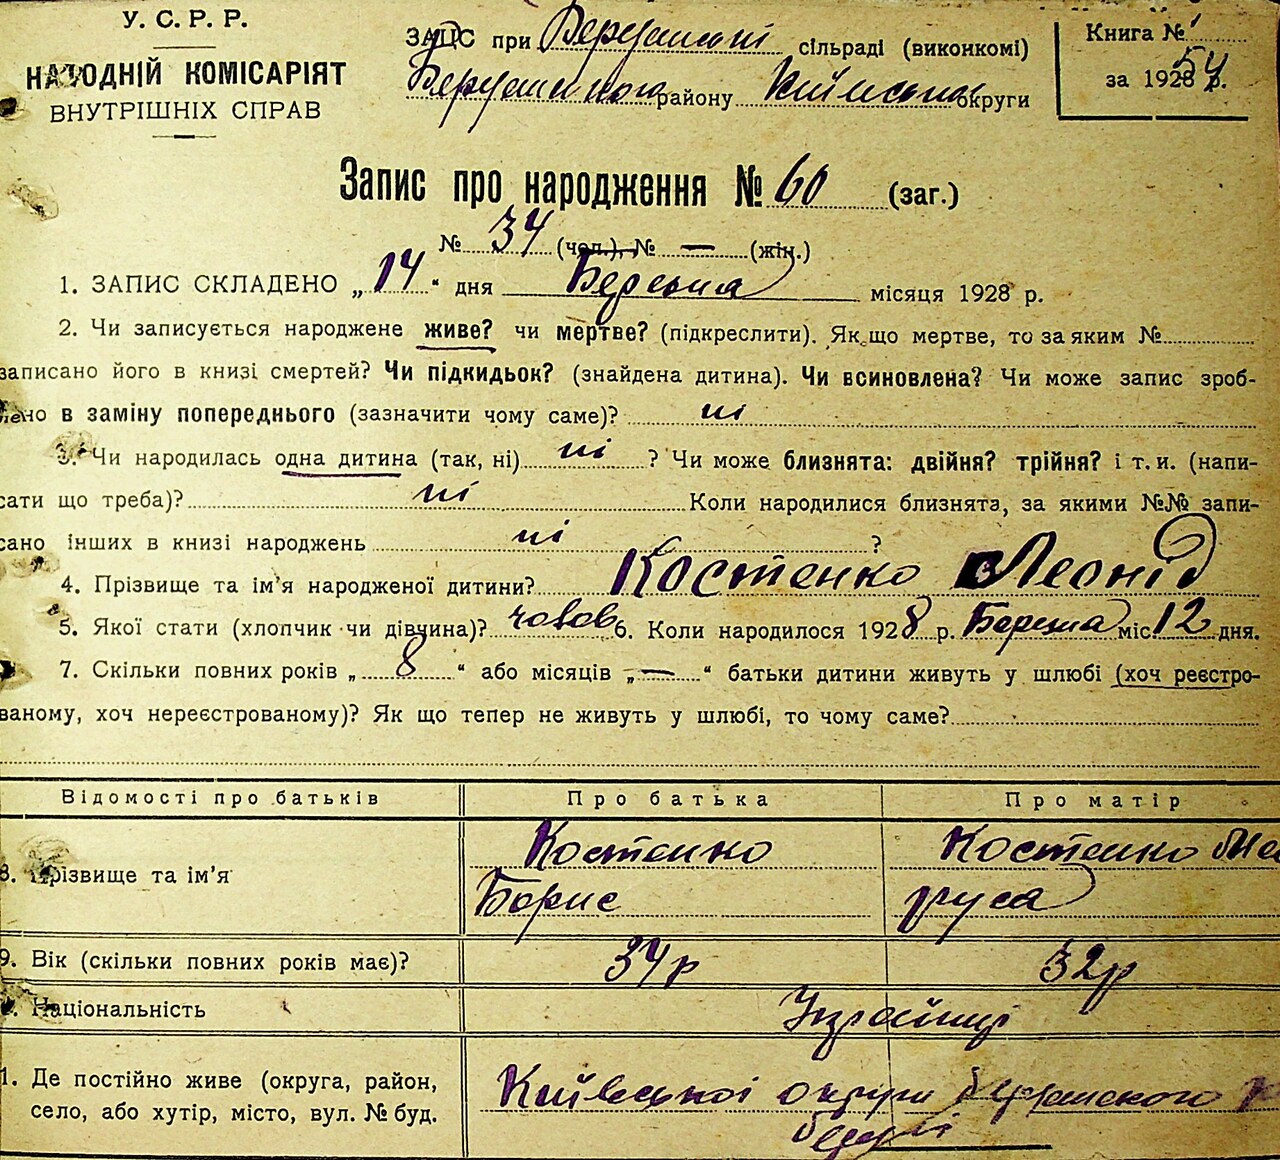 У. С. Р. Р.
НАРОДНІЙ КОМІСАРІЯТ
ВНУТРІШНІХ СПРАВ
ЗАПИС при сільраді (виконкомі)
району Київської округи
Книга № 1
за 1928 р. 54
Запис про народження № 60 (заг.)
№ 34 (чол.), № — (жін.)
1. ЗАПИС СКЛАДЕНО „14“ дня Березня місяця 1928 р.
2. Чи записується народжене живе? чи мертве? (підкреслити). Як що мертве, то за яким №
записано його в книзі смертей? Чи підкидьок? (знайдена дитина). Чи всиновлена? Чи може запис зроб-
лено в заміну попереднього (зазначити чому саме)? ні
3. Чи народилась одна дитина (так, ні) ні ? Чи може близнята: двійня? трійня? і т. и. (напи-
сати що треба)? ні Коли народилися близнята, за якими №№ запи-
сано інших в книзі народжень ні ?
4. Прізвище та ім’я народженої дитини? Костенко Леонід
5. Якої стати (хлопчик чи дівчина)? чолов 6. Коли народилося 1928 р. Березня міс. 12 дня.
7. Скільки повних років „8“ або місяців „—“ батьки дитини живуть у шлюбі (хоч реєстро-
ваному, хоч нереєстрованому)? Як що тепер не живуть у шлюбі, то чому саме?
Відомості про батьків Про батька Про матір
8. Прізвище та ім’я Костенко Борис Костенко
9. Вік (скільки повних років має)? 34 р 32 р
Національність Українці
1. Де постійно живе (округа, район, Київської округи
село, або хутір, місто, вул. № буд.